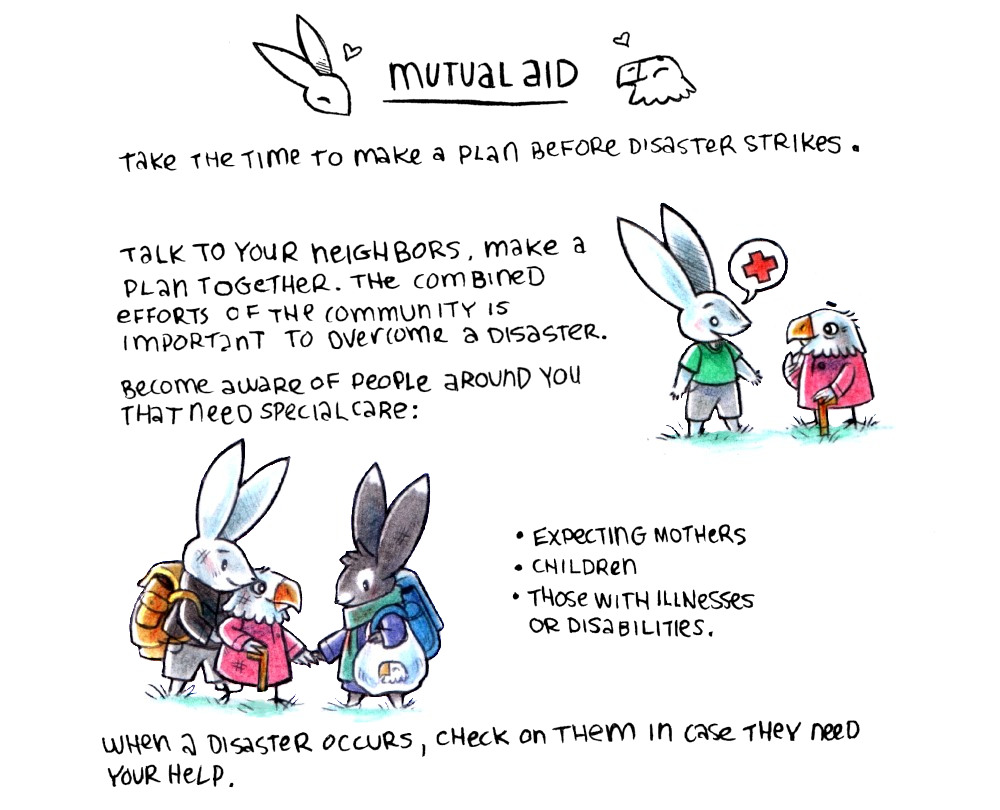 MUTUAL AID
TAKE THE TIME TO MAKE A PLAN BEFORE DISASTER STRIKES.
TALK TO YOUR NEIGHBORS, MAKE A
PLAN TOGETHER. THE COMBINED
EFFORTS OF THE COMMUNITY IS
IMPORTANT TO OVERCOME A DISASTER.
BECOME AWARE OF PEOPLE AROUND YOU
THAT NEED SPECIAL CARE:
• EXPECTING MOTHERS
• CHILDREN
• THOSE WITH ILLNESSES
OR DISABILITIES.
WHEN A DISASTER OCCURS, CHECK ON THEM IN CASE THEY NEED
YOUR HELP.